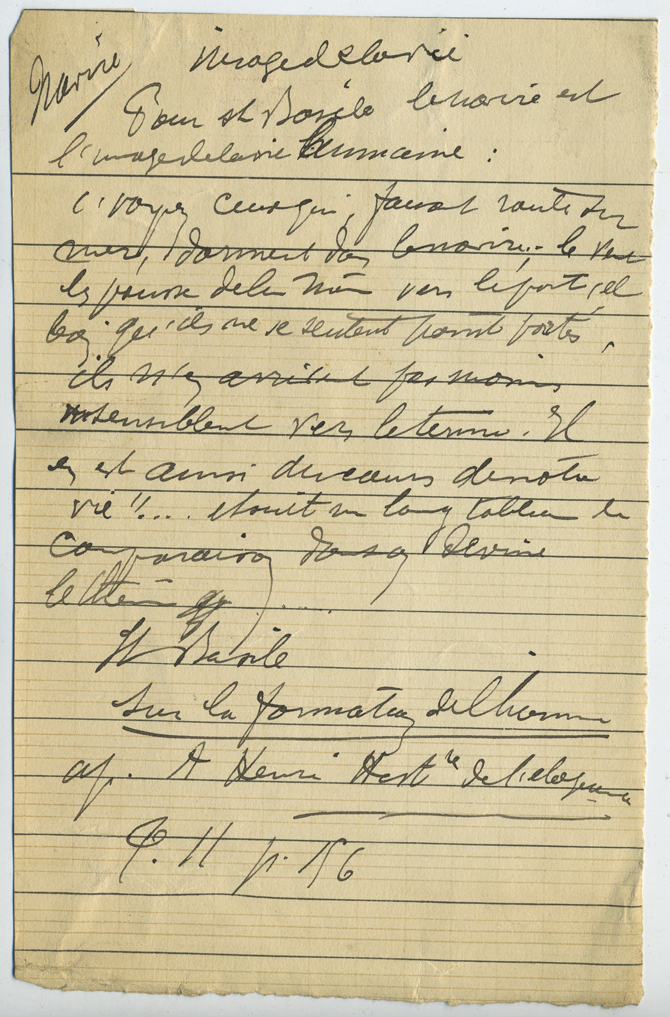 Navire
image de la vie
Pour St Basile le navire est
l'image de la vie humaine :
"voyez ceux qui, faisant route sur
mer, dorment dans le navire : le vent
les pousse de lui même vers le port, et
bien qu'ils ne se sentent point portés,
ils n'en arrivent pas moins
insensiblent vers le terme. Il
en est ainsi du cours de notre
vie".... et suit un long tableau de
comparaison dans
le thème
St Basile
Sur la formation de l'homme
ap. A Henri Hist re de l'eloquence
T. II p. 156